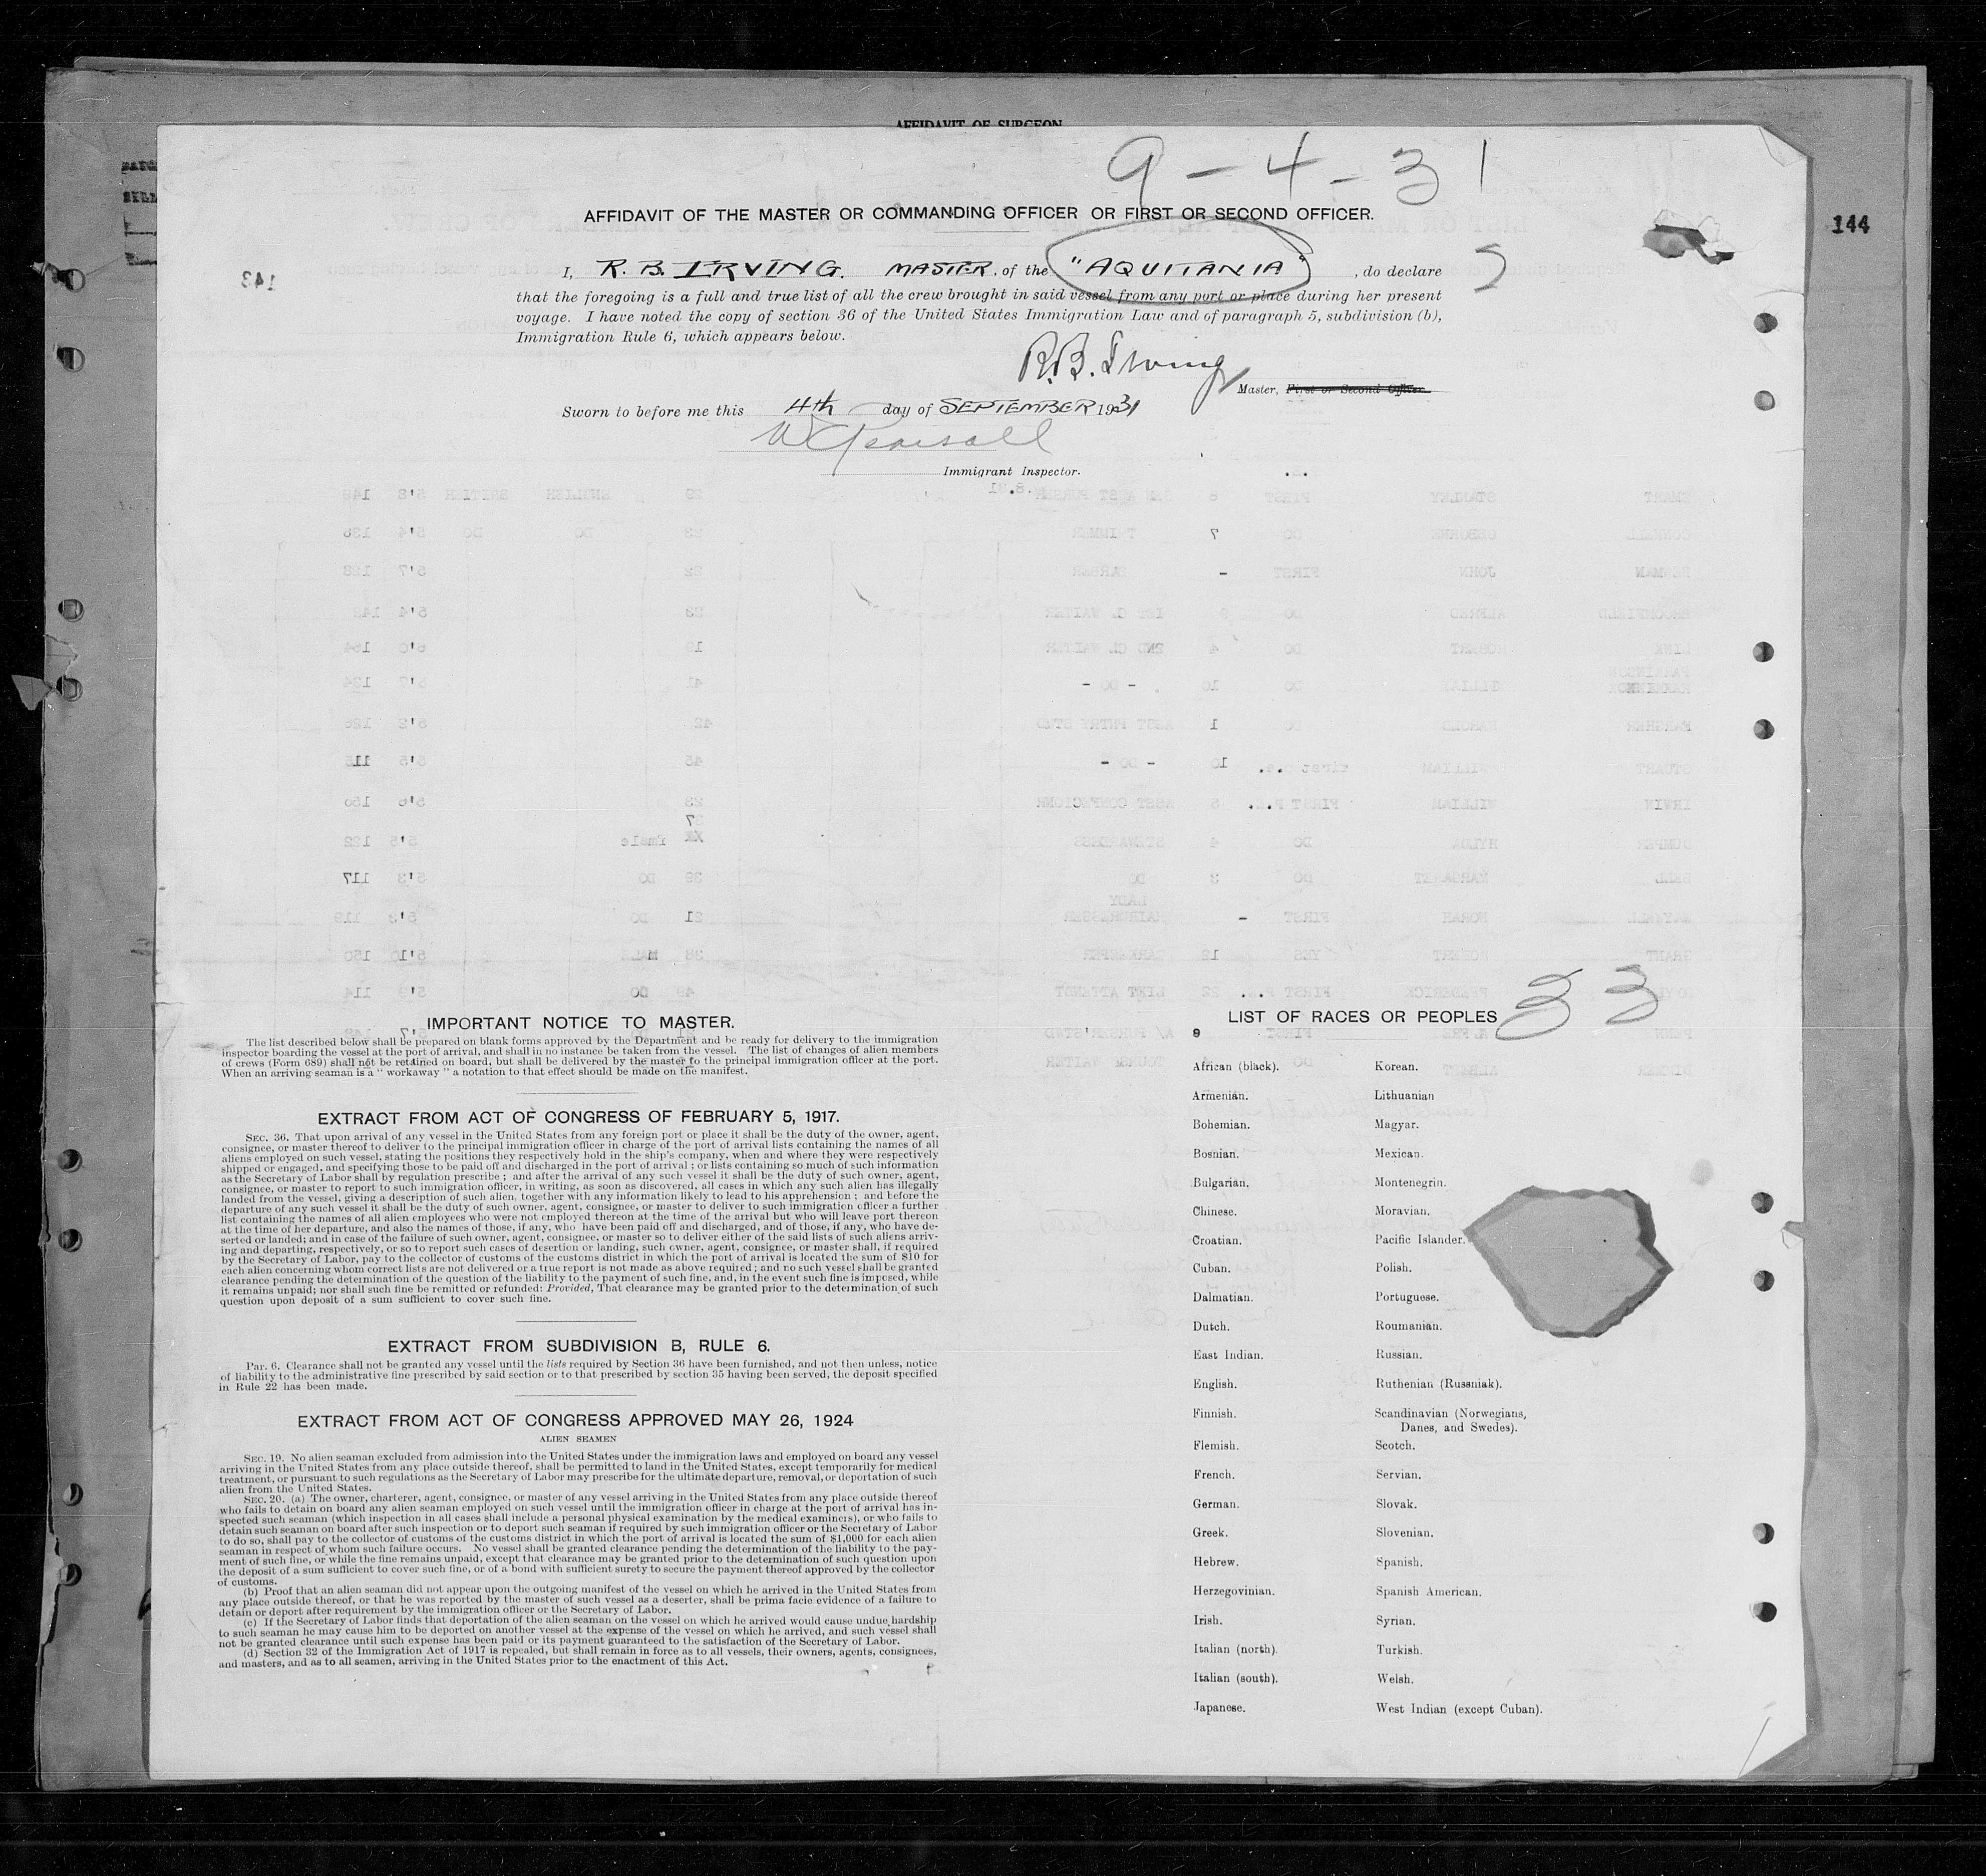 AFFIDAVIT OF SURGEON
9-4-31
144
AFFIDAVIT OF THE MASTER OR COMMANDING OFFICER OR FIRST OR SECOND OFFICER.
I, R. B. IRVING. MASTER, of the "AQUITANIA", do declare
that the foregoing is a full and true list of all the crew brought in said vessel from any port or place during her present
voyage. I have noted the copy of section 36 of the United States Immigration Law and of paragraph 5, subdivision (b),
Immigration Rule 6, which appears below.
R. B. Irving
Master, First or Second Officer.
Sworn to before me this 4th day of SEPTEMBER 1931
Immigrant Inspector.
33
IMPORTANT NOTICE TO MASTER.
The list described below shall be prepared on blank forms approved by the Department and be ready for delivery to the immigration
inspector boarding the vessel at the port of arrival, and shall in no instance be taken from the vessel. The list of changes of alien members
of crews (Form 689) shall not be retained on board, but shall be delivered by the master to the principal immigration officer at the port.
When an arriving seaman is a " workaway " a notation to that effect should be made on the manifest.
EXTRACT FROM ACT OF CONGRESS OF FEBRUARY 5, 1917.
SEC. 36. That upon arrival of any vessel in the United States from any foreign port or place it shall be the duty of the owner, agent,
consignee, or master thereof to deliver to the principal immigration officer in charge of the port of arrival lists containing the names of all
aliens employed on such vessel, stating the positions they respectively hold in the ship's company, when and where they were respectively
shipped or engaged, and specifying those to be paid off and discharged in the port of arrival ; or lists containing so much of such information
as the Secretary of Labor shall by regulation prescribe ; and after the arrival of any such vessel it shall be the duty of such owner, agent,
consignee, or master to report to such immigration officer, in writing, as soon as discovered, all cases in which any such alien has illegally
landed from the vessel, giving a description of such alien, together with any information likely to lead to his apprehension ; and before the
departure of any such vessel it shall be the duty of such owner, agent, consignee, or master to deliver to such immigration officer a further
list containing the names of all alien employees who were not employed thereon at the time of the arrival but who will leave port thereon
at the time of her departure, and also the names of those, if any, who have been paid off and discharged, and of those, if any, who have de-
serted or landed; and in case of the failure of such owner, agent, consignee, or master so to deliver either of the said lists of such aliens arriv-
ing and departing, respectively, or so to report such cases of desertion or landing, such owner, agent, consignee, or master shall, if required
by the Secretary of Labor, pay to the collector of customs of the customs district in which the port of arrival is located the sum of $10 for
each alien concerning whom correct lists are not delivered or a true report is not made as above required ; and no such vessel shall be granted
clearance pending the determination of the question of the liability to the payment of such fine, and, in the event such fine is imposed, while
it remains unpaid; nor shall such fine be remitted or refunded: Provided, That clearance may be granted prior to the determination of such
question upon deposit of a sum sufficient to cover such fine.
EXTRACT FROM SUBDIVISION B, RULE 6.
Par. 6. Clearance shall not be granted any vessel until the lists required by Section 36 have been furnished, and not then unless, notice
of liability to the administrative fine prescribed by said section or to that prescribed by section 35 having been served, the deposit specified
in Rule 22 has been made.
EXTRACT FROM ACT OF CONGRESS APPROVED MAY 26, 1924
ALIEN SEAMEN
SEC. 19. No alien seaman excluded from admission into the United States under the immigration laws and employed on board any vessel
arriving in the United States from any place outside thereof, shall be permitted to land in the United States, except temporarily for medical
treatment, or pursuant to such regulations as the Secretary of Labor may prescribe for the ultimate departure, removal, or deportation of such
alien from the United States.
SEC. 20. (a) The owner, charterer, agent, consignee, or master of any vessel arriving in the United States from any place outside thereof
who fails to detain on board any alien seaman employed on such vessel until the immigration officer in charge at the port of arrival has in-
spected such seaman (which inspection in all cases shall include a personal physical examination by the medical examiners), or who fails to
detain such seaman on board after such inspection or to deport such seaman if required by such immigration officer or the Secretary of Labor
to do so, shall pay to the collector of customs of the customs district in which the port of arrival is located the sum of $1,000 for each alien
seaman in respect of whom such failure occurs. No vessel shall be granted clearance pending the determination of the liability to the pay-
ment of such fine, or while the fine remains unpaid, except that clearance may be granted prior to the determination of such question upon
the deposit of a sum sufficient to cover such fine, or of a bond with sufficient surety to secure the payment thereof approved by the collector
of customs.
(b) Proof that an alien seaman did not appear upon the outgoing manifest of the vessel on which he arrived in the United States from
any place outside thereof, or that he was reported by the master of such vessel as a deserter, shall be prima facie evidence of a failure to
detain or deport after requirement by the immigration officer or the Secretary of Labor.
(c) If the Secretary of Labor finds that deportation of the alien seaman on the vessel on which he arrived would cause undue hardship
to such seaman he may cause him to be deported on another vessel at the expense of the vessel on which he arrived, and such vessel shall
not be granted clearance until such expense has been paid or its payment guaranteed to the satisfaction of the Secretary of Labor.
(d) Section 32 of the Immigration Act of 1917 is repealed, but shall remain in force as to all vessels, their owners, agents, consignees,
and masters, and as to all seamen, arriving in the United States prior to the enactment of this Act.
LIST OF RACES OR PEOPLES
African (black).
Armenian.
Bohemian.
Bosnian.
Bulgarian.
Chinese.
Croatian.
Cuban.
Dalmatian.
Dutch.
East Indian.
English.
Finnish.
Flemish.
French.
German.
Greek.
Hebrew.
Herzegovinian.
Irish.
Italian (north).
Italian (south).
Japanese.
Korean.
Lithuanian
Magyar.
Mexican.
Montenegrin.
Moravian.
Pacific Islander.
Polish.
Portuguese.
Roumanian.
Russian.
Ruthenian (Russniak).
Scandinavian (Norwegians,
Danes, and Swedes).
Scotch.
Servian.
Slovak.
Slovenian.
Spanish.
Spanish American.
Syrian.
Turkish.
Welsh.
West Indian (except Cuban).